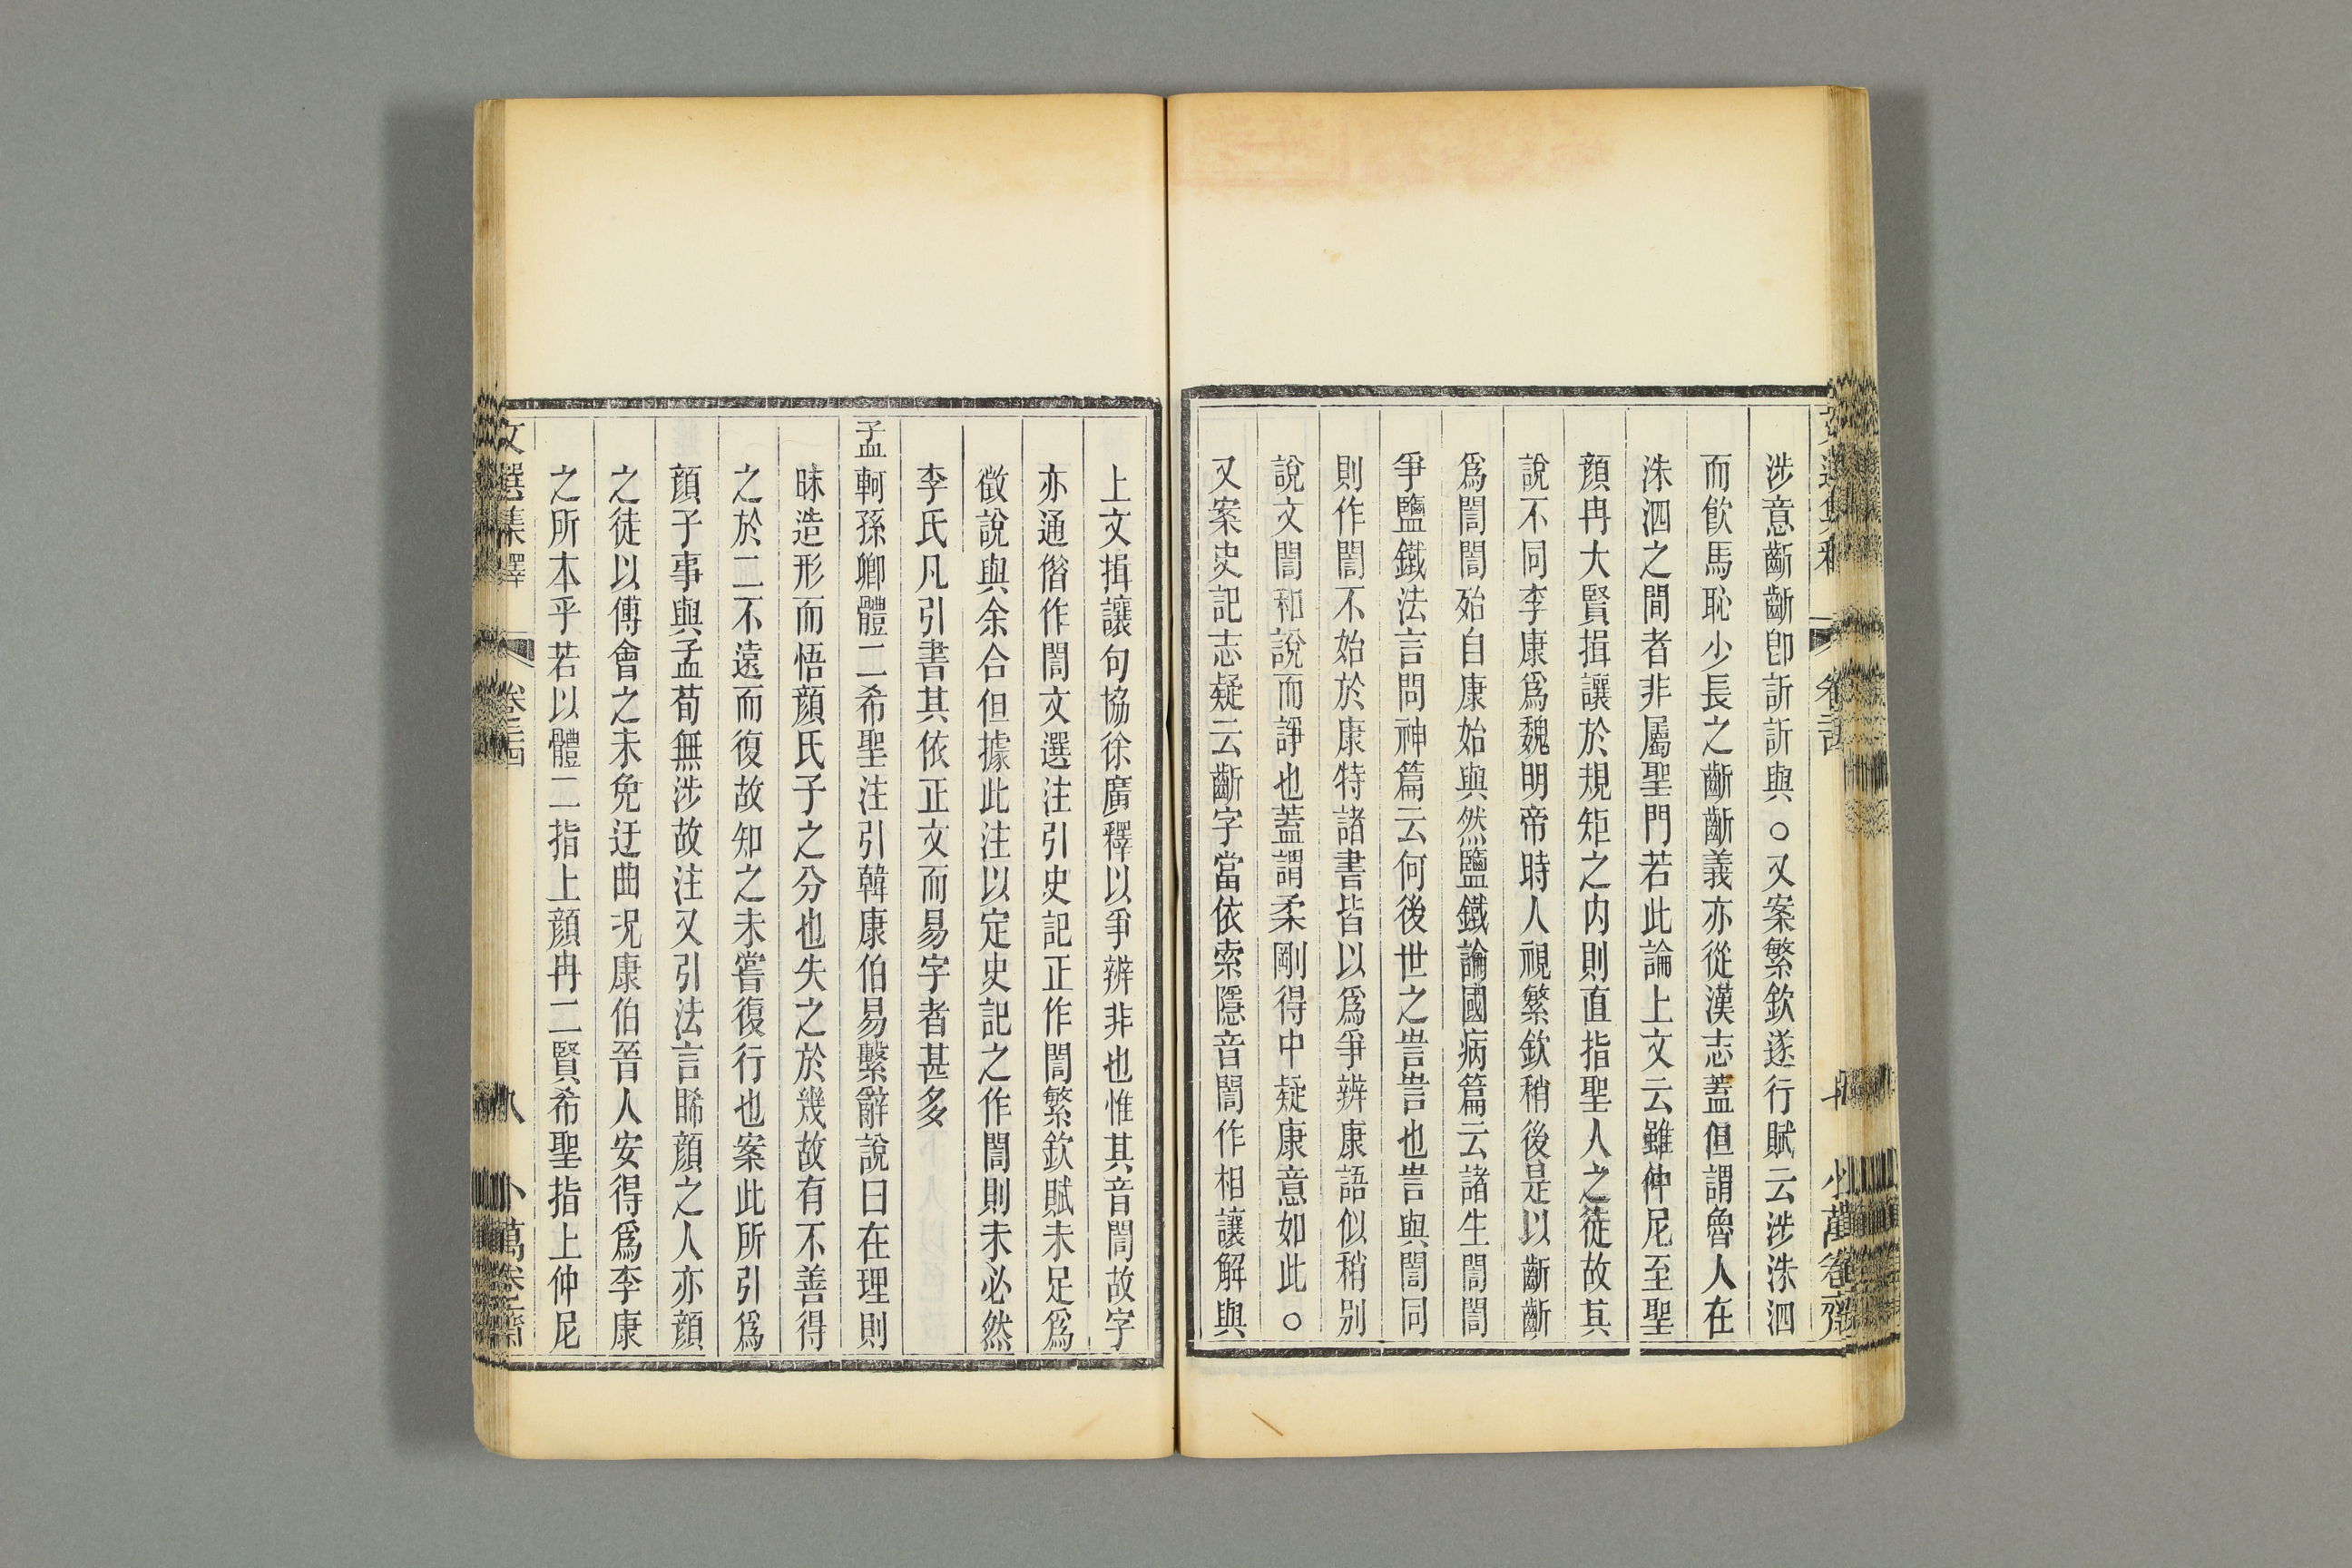 涉意齗齗卽訢訢與○又案繁欽遂行賦云涉洙泗
而飮馬恥少長之齗齗義亦從漢志蓋但謂魯人在
洙泗之間者非屬聖門若此論上文云雖仲尼至聖
顔冉大賢揖讓於規矩之内則直指聖人之徒故其
說不同李康爲魏明帝時人視繁欽稍後是以齗齗
爲誾誾殆自康始與然鹽鐵論國病篇云諸生誾誾
爭鹽鐵法言問神篇云何後世之訔訔也訔與誾同
則作誾不始於康特諸書皆以爲爭辨康語似稍别
說文誾和說而諍也蓋謂柔剛得中疑康意如此○
又案史記志疑云齗字當依索隱音誾作相讓解與
上文揖讓句協徐廣釋以爭辨非也惟其音誾故字
亦通偺作誾文選注引史記正作誾繁欽賦未足爲
徵說與余合但據此注以定史記之作誾則未必然
李氏凡引書其依正文而易字者甚多
孟軻孫卿體二希聖注引韓康伯易繫辭說曰在理則
昧造形而悟顔氏子之分也失之於幾故有不善得
之於二不遠而復故知之未嘗復行也案此所引爲
顔子事與孟荀無涉故注又引法言睎顔之人亦顔
之徒以傅會之未免迂曲况康伯晉人安得爲李康
之所本乎若以體二指上顔冉二賢希聖指上仲尼
文選集釋 卷二十四 八 小萬卷齋